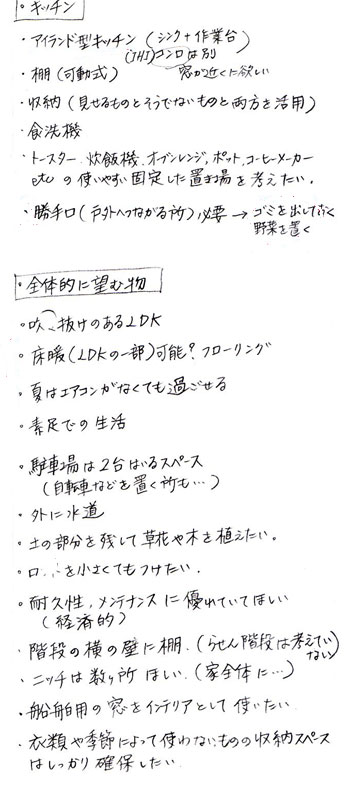 ・キッチン
・アイランド型キッチン(シンク+作業台)
(IHI)コンロは別
・棚(可動式) 窓が近くに欲しい
・収納(見せるものとそうでないものと両方を活用)
・食洗機
・トースター、炊飯機、オーブンレンジ、ポット、コーヒーメーカー
etc の使いやすい固定した置き場を考えたい。
・勝手口(戸外へつながる所)必要 → ゴミを出しておく
野菜を置く
・全体的に望む物
・吹抜けのあるLDK
・床暖(LDKの一部)可能?フローリング
・夏はエアコンがなくても過ごせる
・素足での生活
・駐車場は2台はいるスペース
(自転車などを置く所も…)
・外に水道
・土の部分を残して草花や木を植えたい。
・ロ を小さくてもつけたい.
・耐久性、メンテナンスに優れていてほしい
(経済的)
・階段の横の壁に棚.(らせん階段は考えてい
ない)
・ニッチは数ヶ所ほしい.(家全体に…)
・船舶用の窓をインテリアとして使いたい
・衣類や季節によって使わないものの収納スペース
はしっかり確保したい